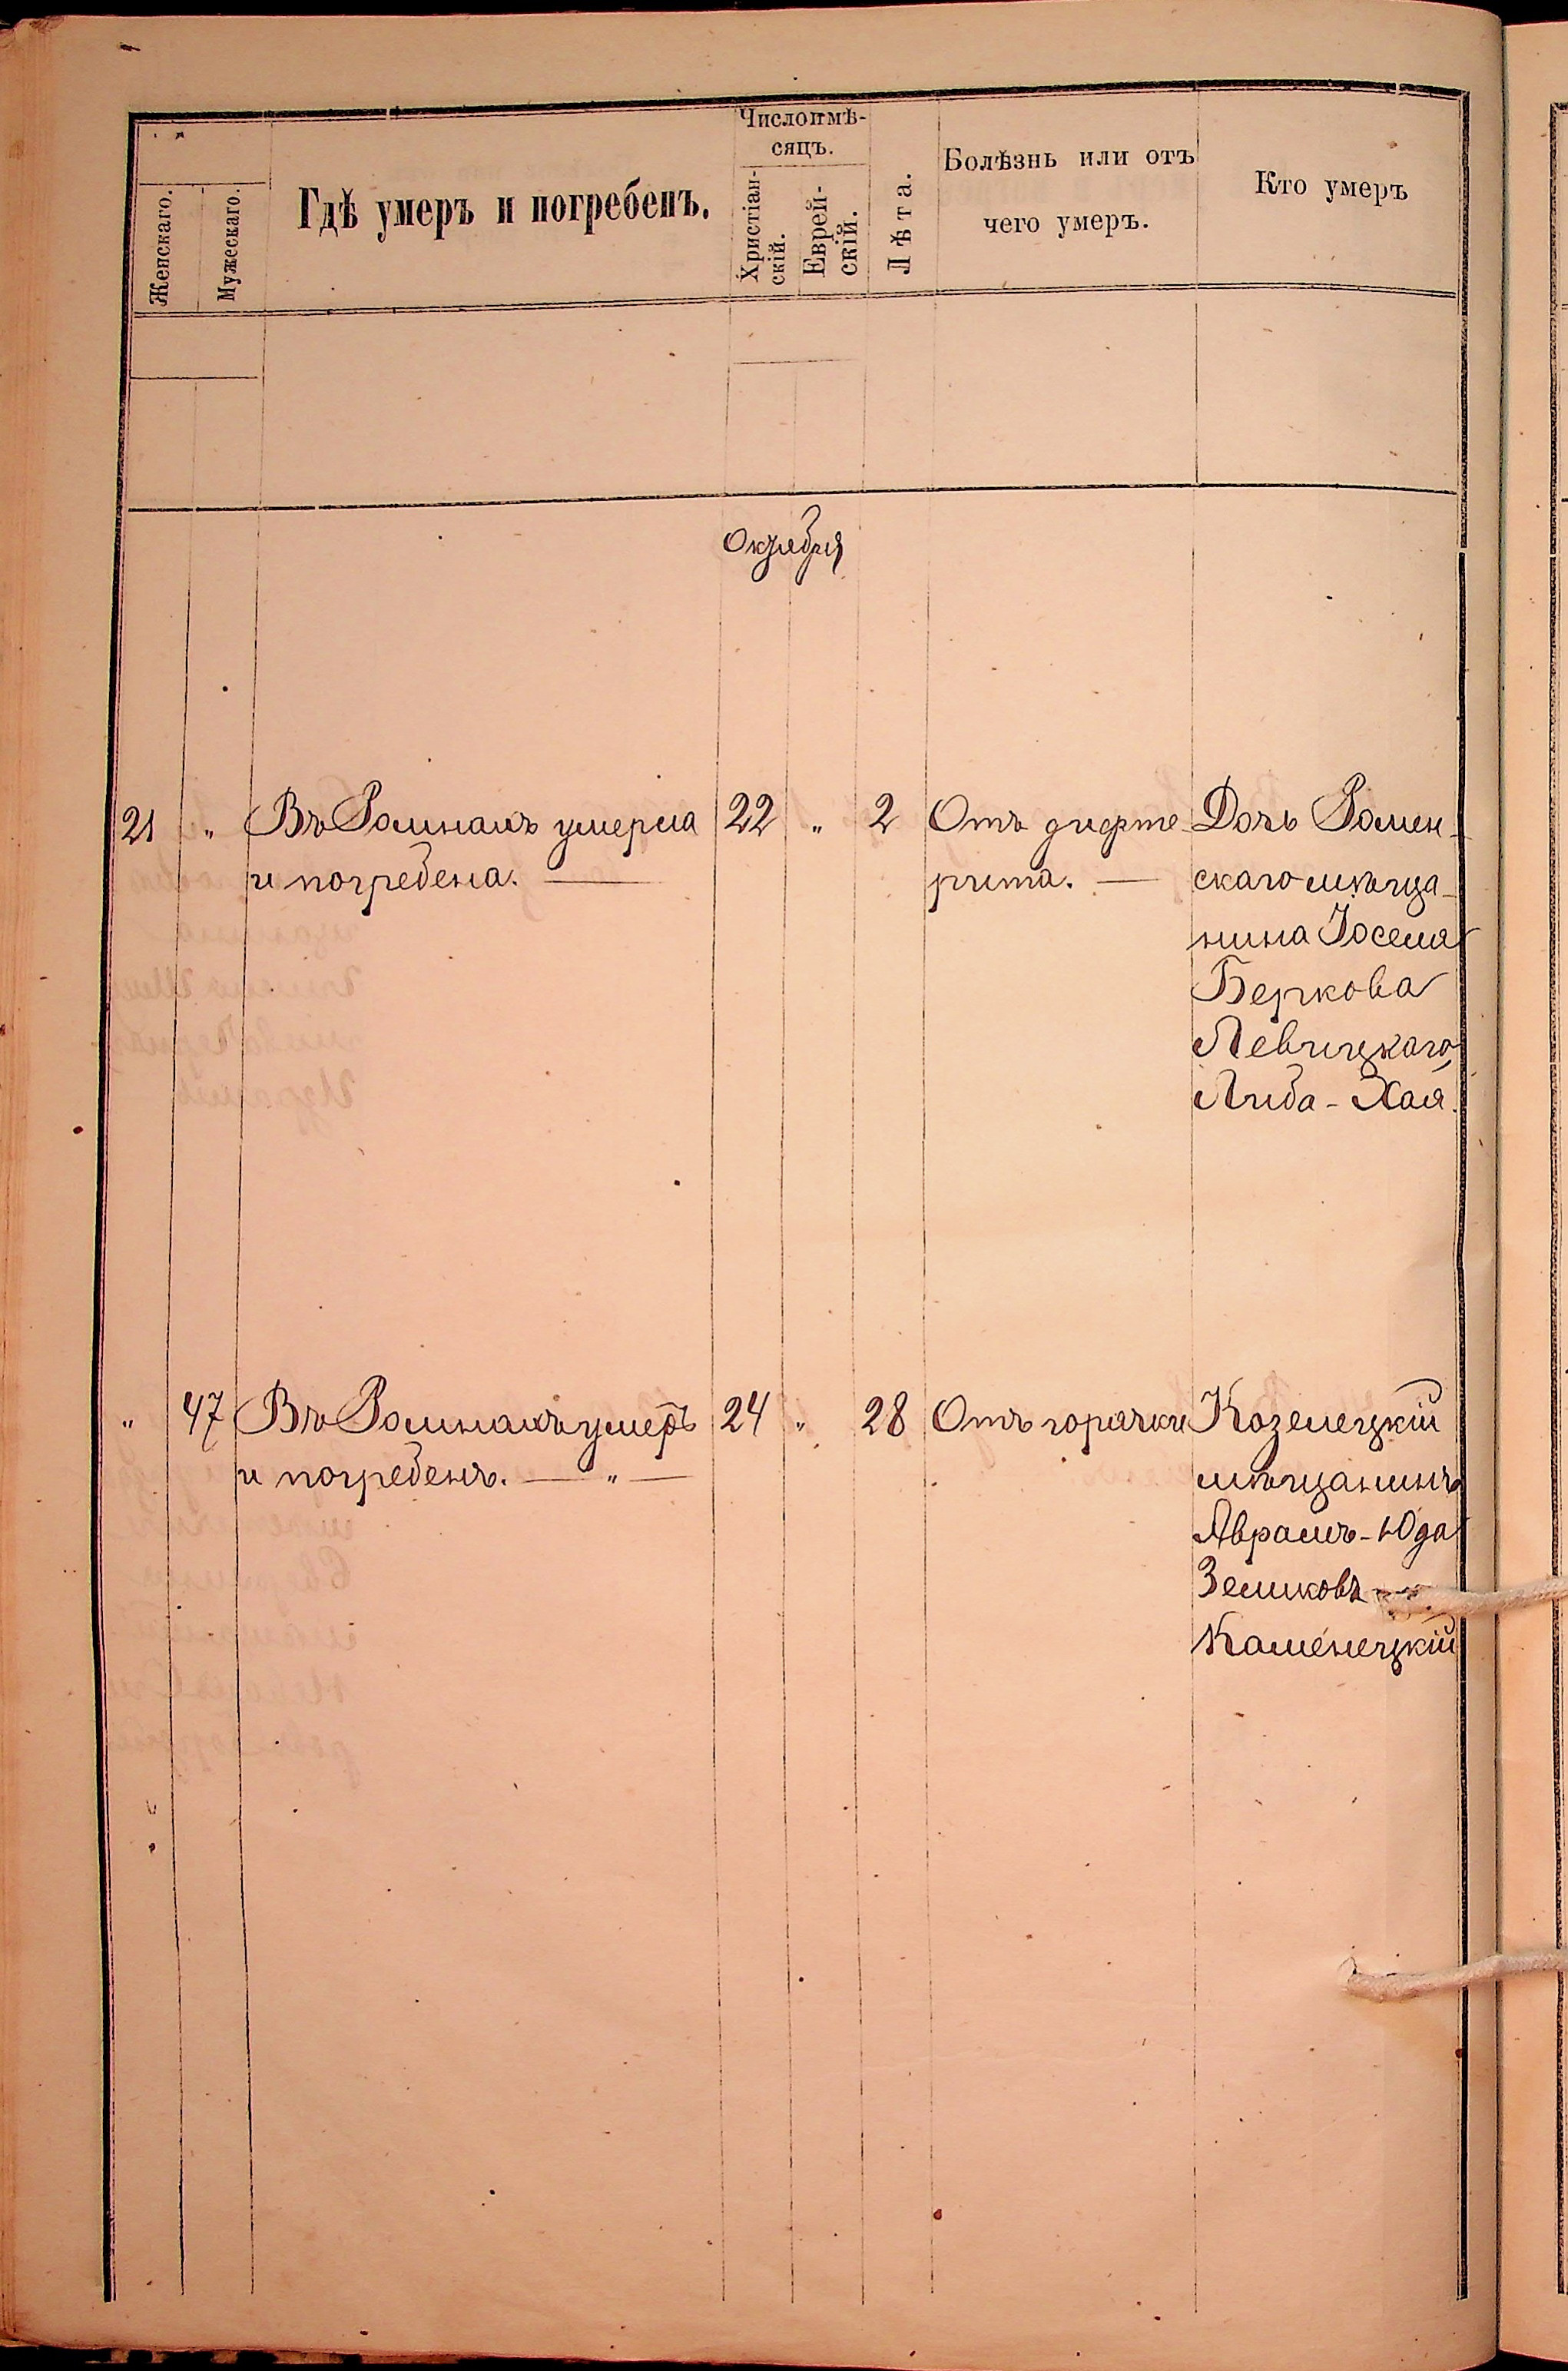 Женскаго.
Мужескаго.
Гдѣ умеръ и погребенъ.
Число и мѣ-
сяцъ.
Христіан-
скій.
Еврей-
скій.
Лѣта.
Болѣзнь или отъ
чего умеръ.
Кто умеръ
Октября
21 " Въ Ромнахъ умерла 22 " 2 Отъ дифте- Дочь Ромен-
и погребена. — рита. — скаго мѣща-
нина Іоселя
Беркова
Левицкаго
Либа-Хая.
" 47 Въ Ромнахъ умеръ 24 " 28 Отъ горячки Козелецкій
и погребенъ. — " — мѣщанинъ
Аврамъ-Юда
Зеликовъ
Каменецкій